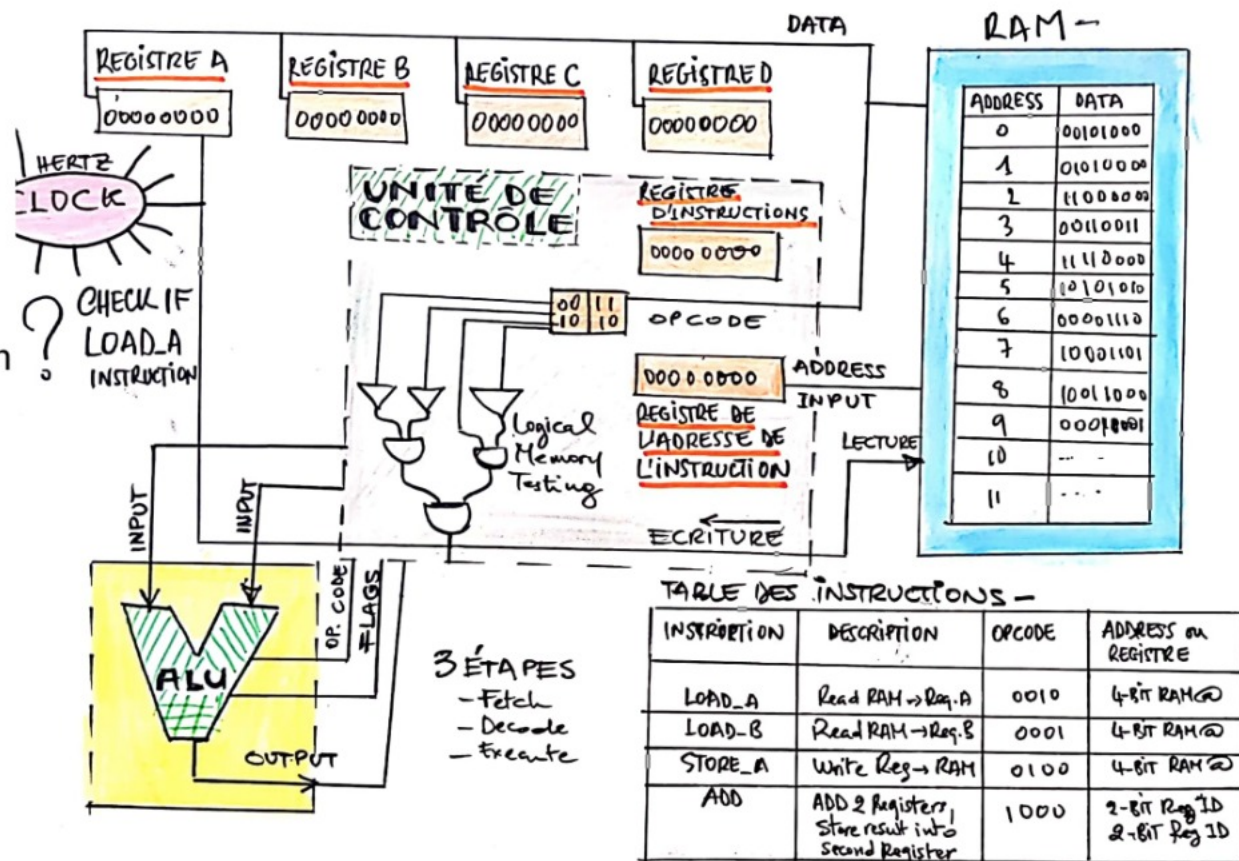 DATA
RAM -
REGISTRE A
REGISTRE B
REGISTRE C
REGISTRE D
00000000
00000000
00000000
00000000
HERTZ
CLOCK
? CHECK IF
LOAD_A
INSTRUCTION
UNITÉ DE
CONTRÔLE
REGISTRE
D'INSTRUCTIONS
0000 0000
00 11
10 10
OPCODE
0000 0000
ADDRESS
INPUT
REGISTRE DE
L'ADRESSE DE
L'INSTRUCTION
Logical
Memory
Testing
LECTURE
ECRITURE
ADDRESS DATA
0 00101000
1 01010000
2 11000000
3 00110011
4 11110000
5 10101010
6 00001110
7 10001101
8 10011000
9
10 ....
11 ....
INPUT
INPUT
OP. CODE
FLAGS
ALU
OUTPUT
3 ÉTAPES
- Fetch
- Decode
- Execute
TABLE DES INSTRUCTIONS -
INSTRUCTION DESCRIPTION OPCODE ADDRESS ou
REGISTRE
LOAD_A Read RAM → Reg. A 0010 4-BIT RAM @
LOAD_B Read RAM → Reg. B 0001 4-BIT RAM @
STORE_A Write Reg → RAM 0100 4-BIT RAM @
ADD ADD 2 Registers, 1000 2-BIT Reg ID
Store result into 2-BIT Reg ID
second Register